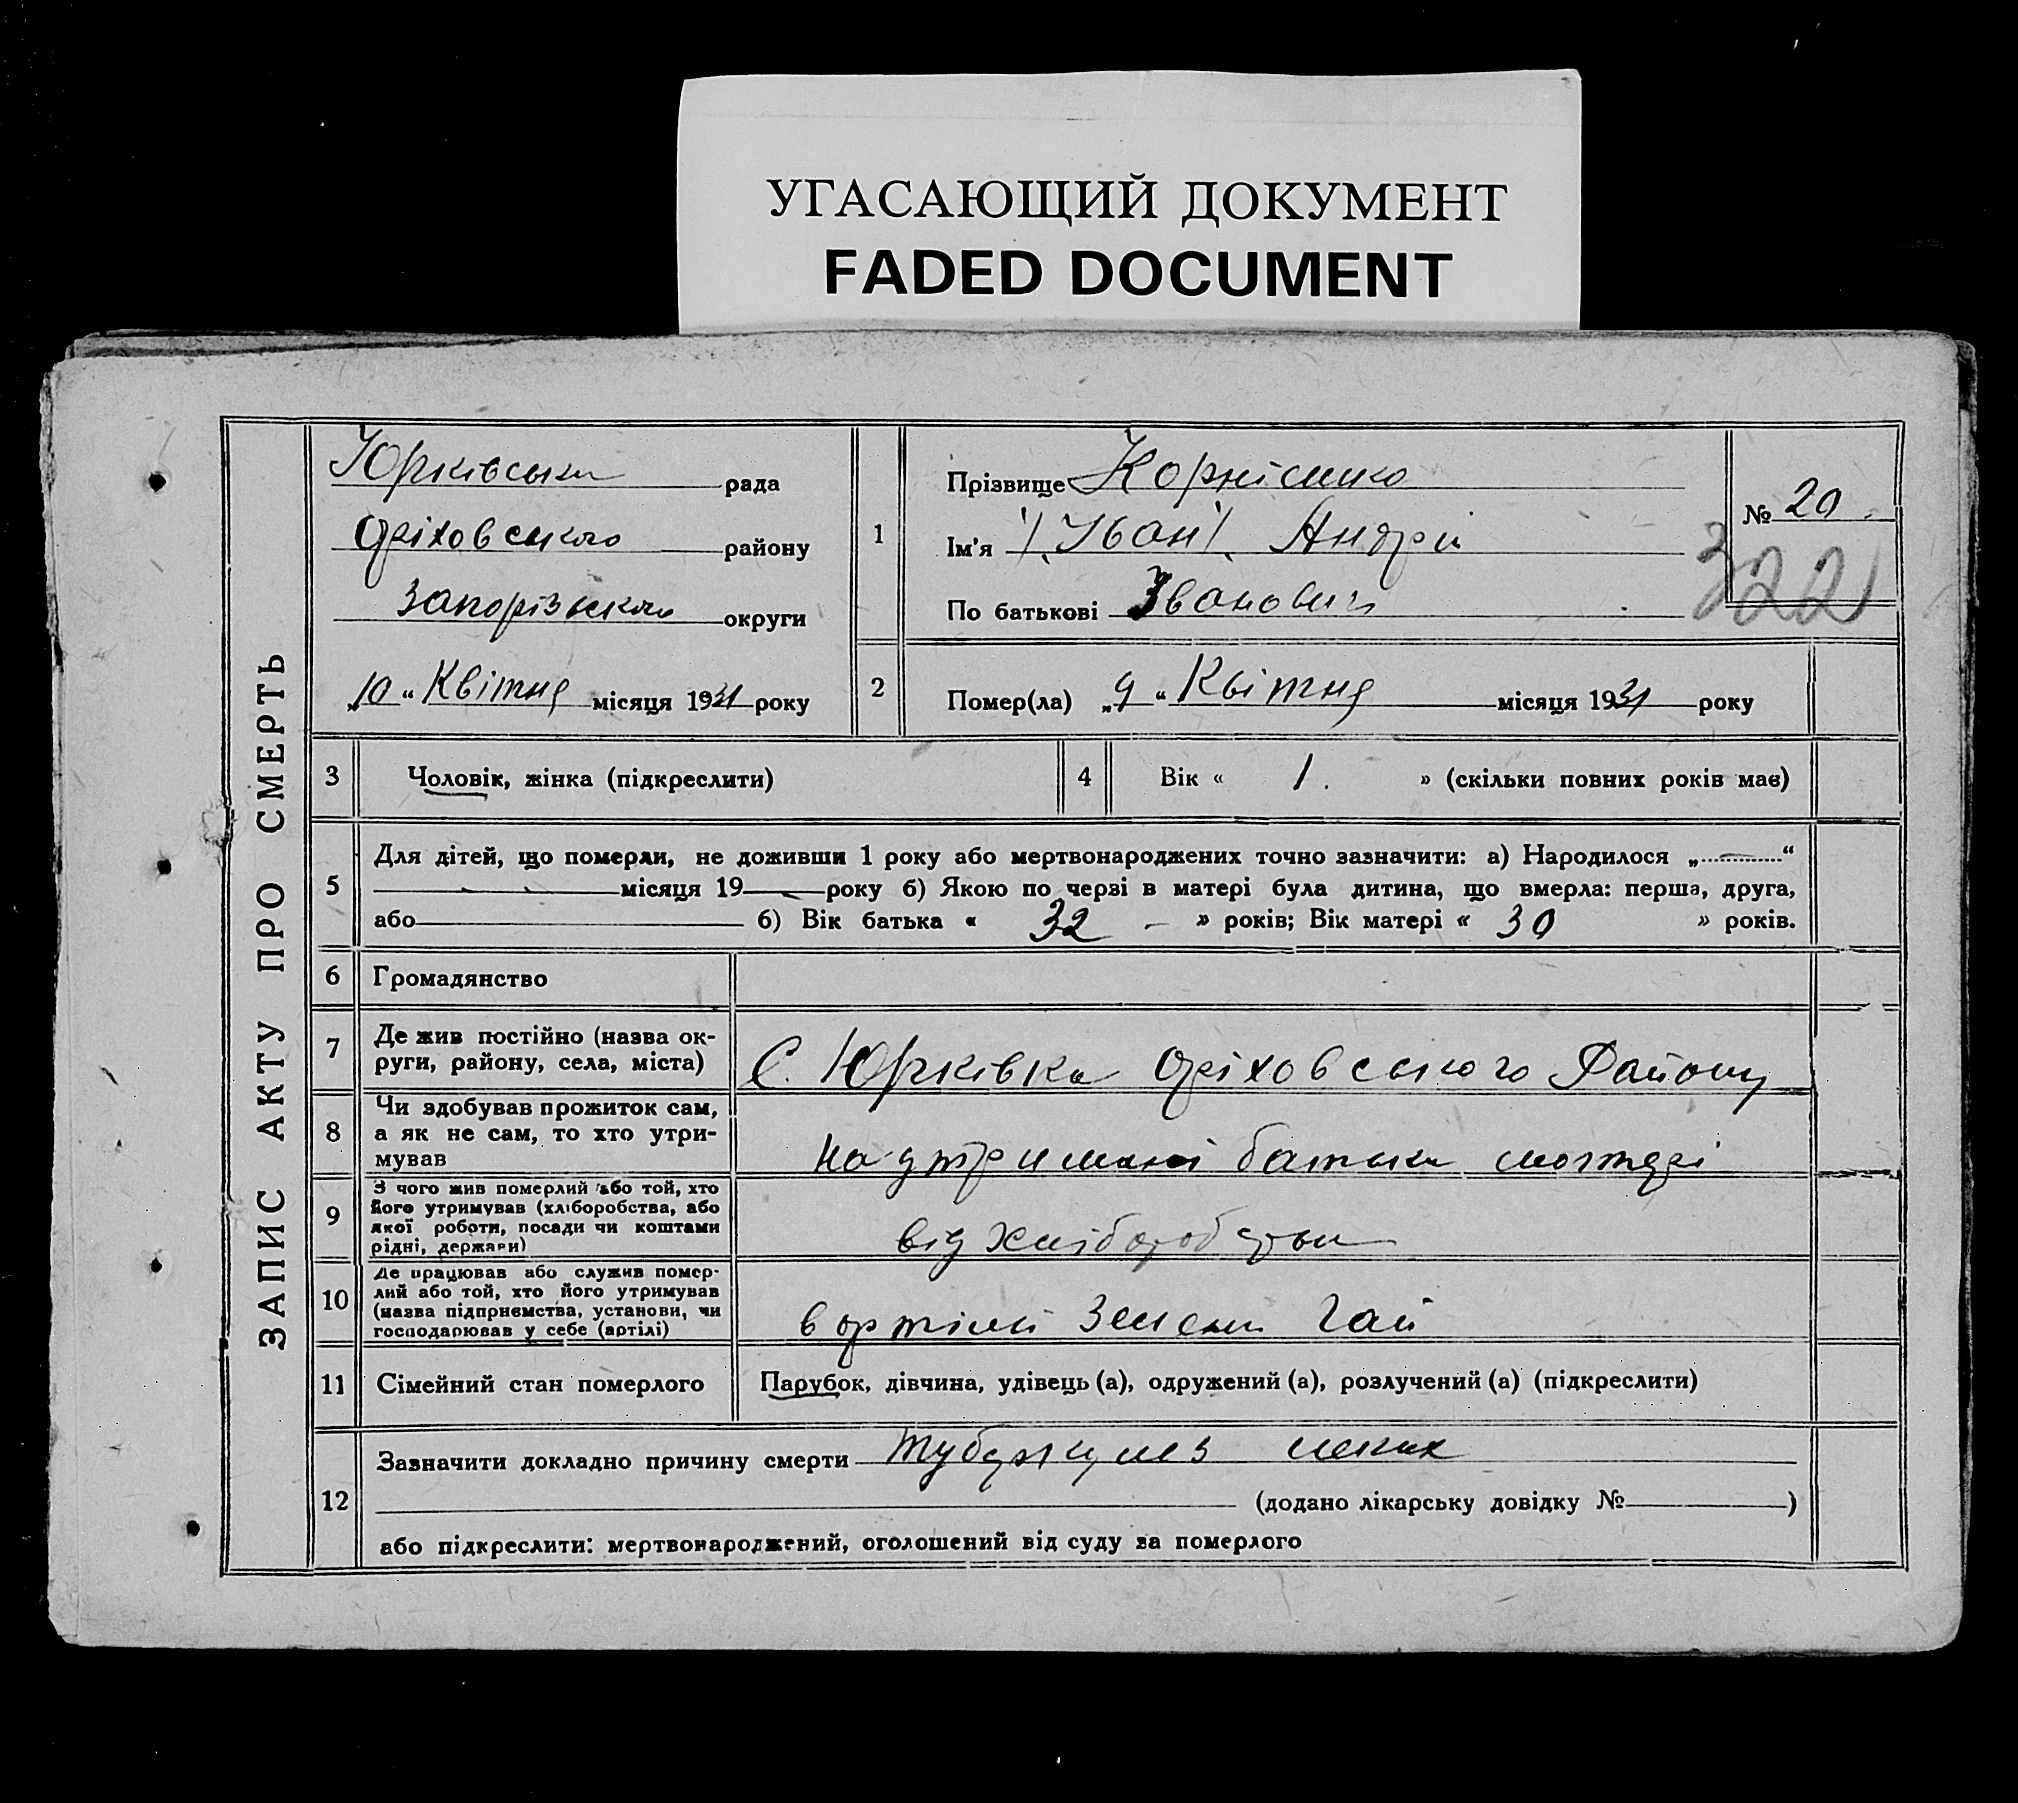 УГАСАЮЩИЙ ДОКУМЕНТ
FADED DOCUMENT
ЗАПИС АКТУ ПРО СМЕРТЬ
Юрківська рада
Оріховського району
Запорізького округи
„10“ Квітня місяця 1931 року
1
Прізвище Корнієнко
Ім'я \.Іван\. Андрій
По батькові Іванович
№ 20.
322
2
Помер(ла) „9“ Квітня місяця 1931 року
3 Чоловік, жінка (підкреслити)
4 Вік « 1. » (скільки повних років має)
5
Для дітей, що померли, не доживши 1 року або мертвонароджених точно зазначити: а) Народилося „—“
місяця 19— року б) Якою по черзі в матері була дитина, що вмерла: перша, друга,
або б) Вік батька « 32 - » років; Вік матері « 30 » років.
6 Громадянство
7
Де жив постійно (назва ок-
руги, району, села, міста)
С. Юрківка Оріховського Району
8
Чи здобував прожиток сам,
а як не сам, то хто утри-
мував
на утримані батька
9
З чого жив померлий або той, хто
його утримував (хліборобства, або
якої роботи, посади чи коштами
рідні, держави)
від хліборобства
10
Де працював або служив помер-
лий або той, хто його утримував
(назва підприємства, установи, чи
господарював у себе (артілі)
в артілі Зелени Гай
11 Сімейний стан померлого
Парубок, дівчина, удівець (а), одружений (а), розлучений (а) (підкреслити)
12
Зазначити докладно причину смерти туберкульз легких
(додано лікарську довідку № )
або підкреслити: мертвонароджений, оголошений від суду за померлого